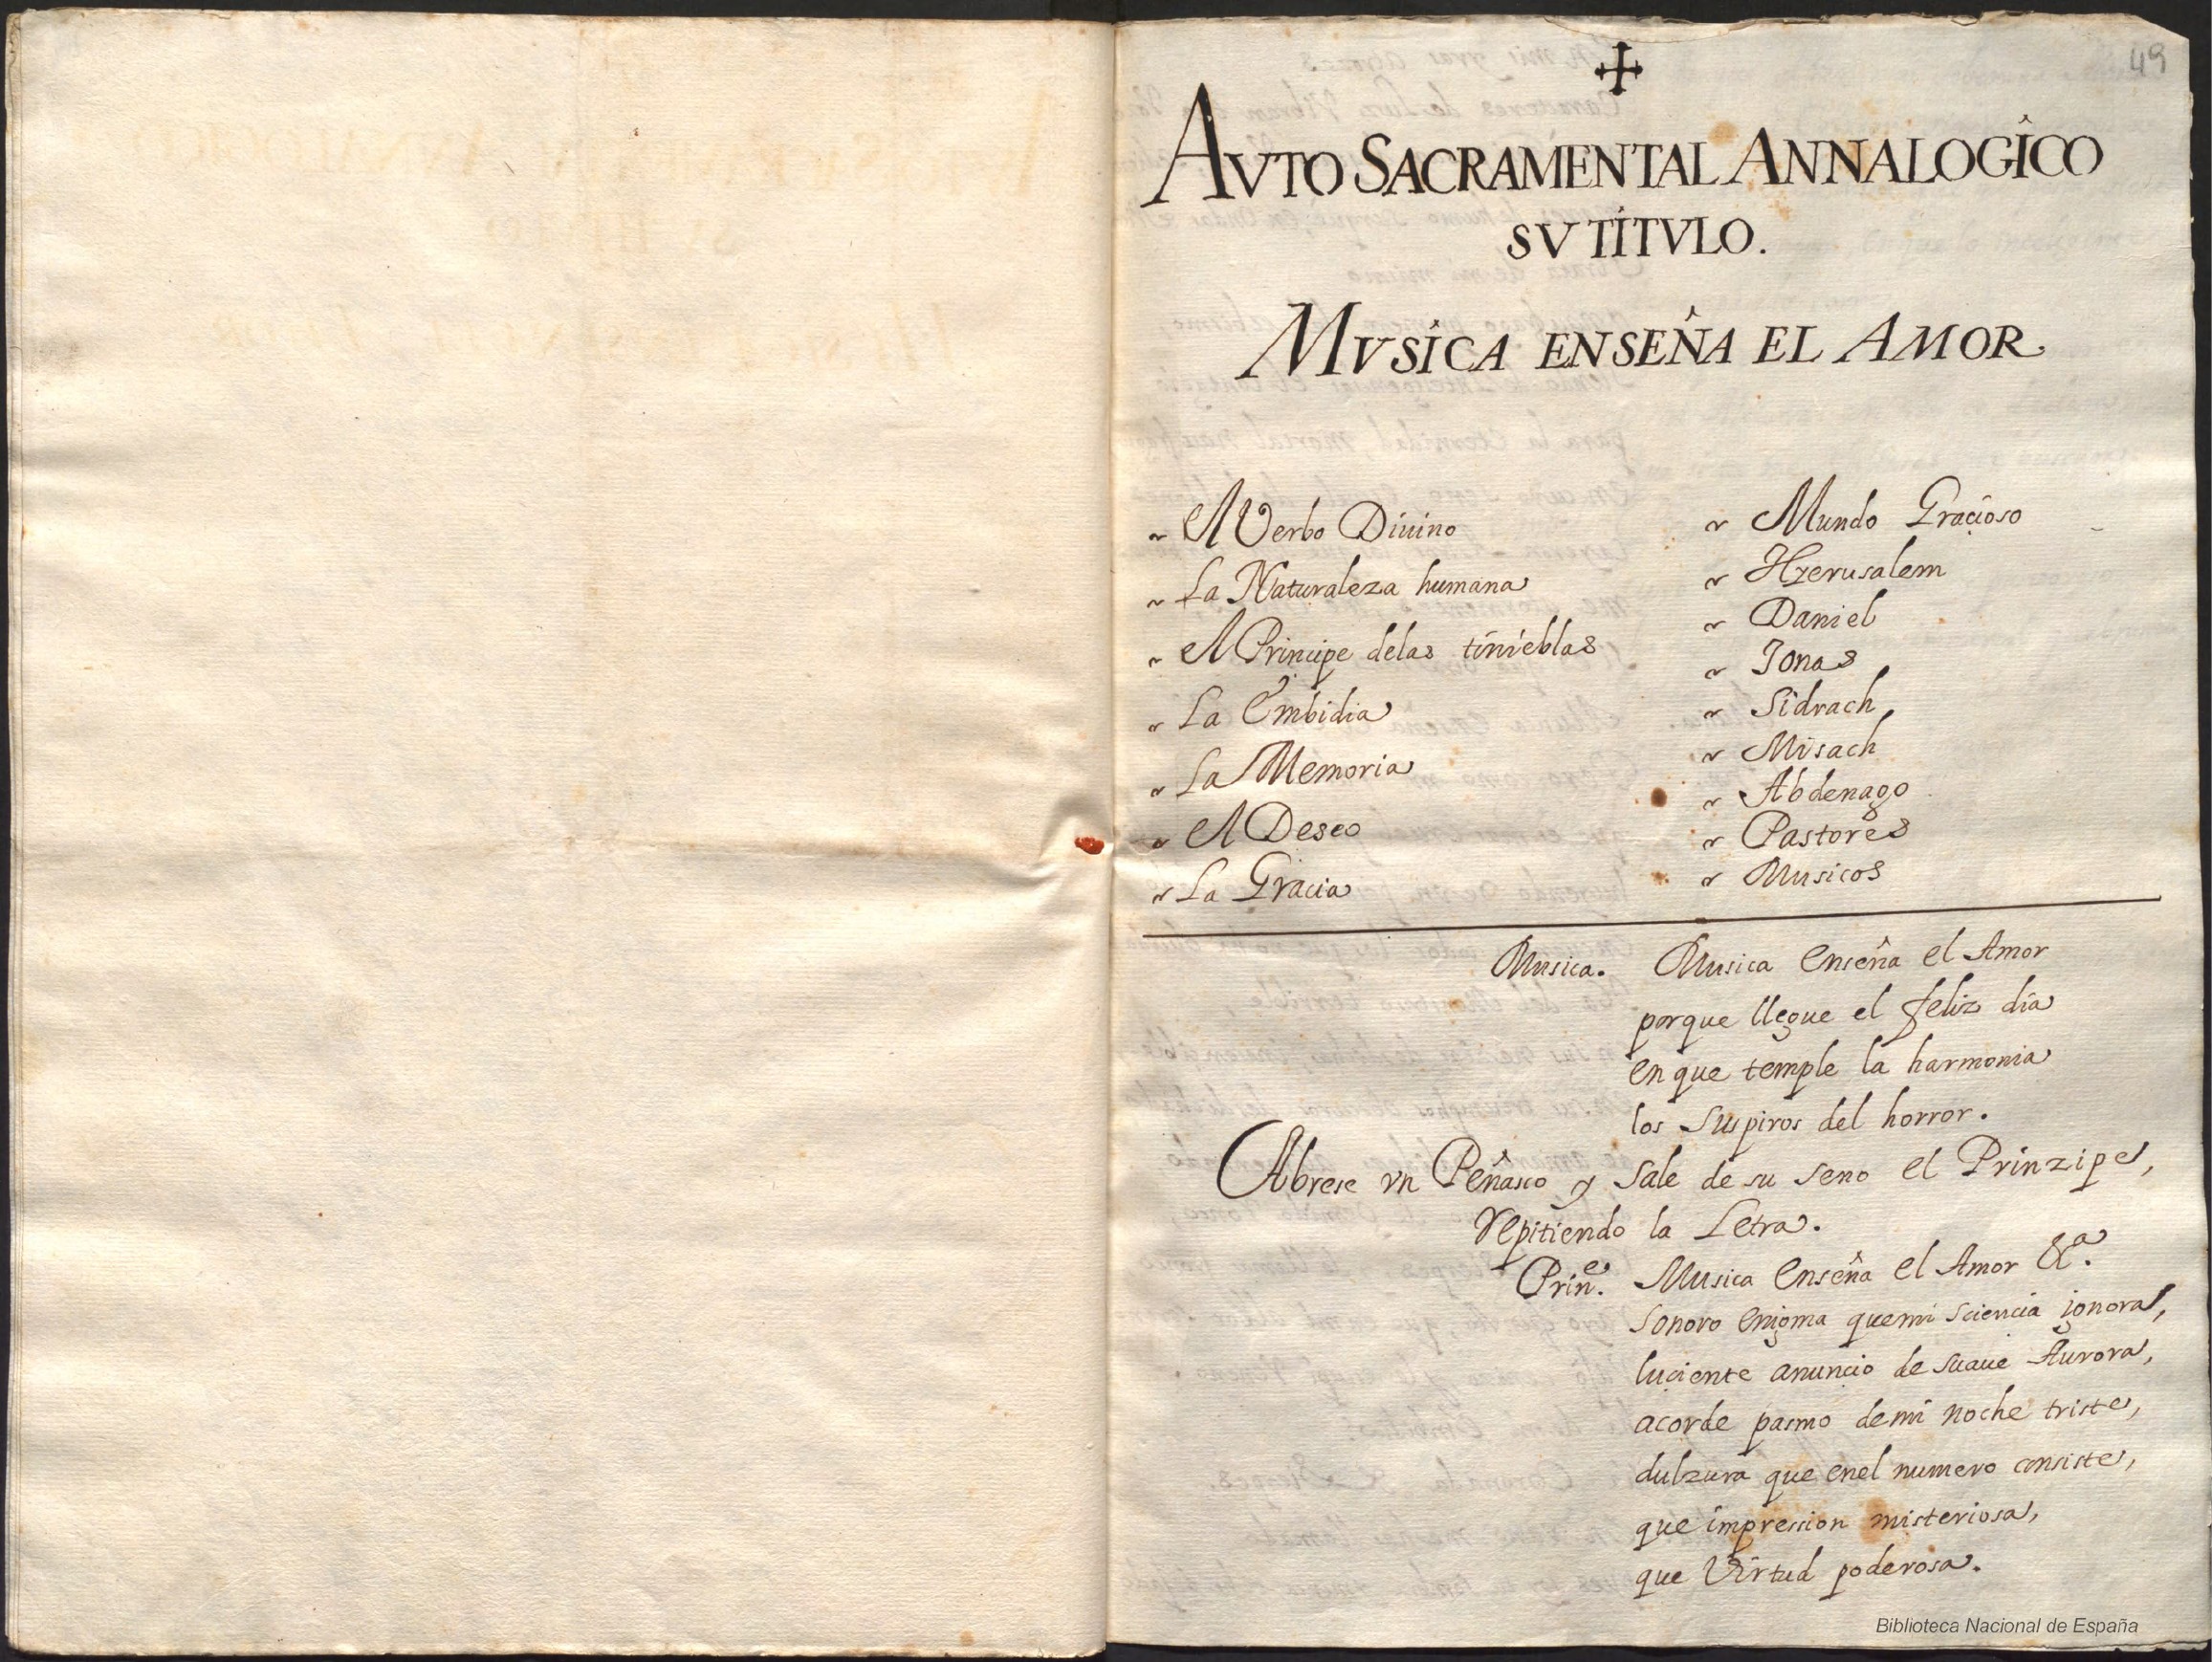 49
AVTO SACRAMENTAL ANNALOGICO
SV TITVLO.
MVSICA ENSEÑA EL AMOR
El Verbo Diuino
La Naturaleza humana
El Principe delas tinieblas
La Embidia
La Memoria
El Deseo
La Gracia
Mundo Gracioso
Hyerusalem
Daniel
Jonas
Sidrach
Misach
Abdenago
Pastores
Musicos
Musica. Musica Enseña el Amor
porque llegue el feliz dia
en que temple la harmonia
los suspiros del horror.
Abrese vn Peñasco y sale de su seno el Prinzipe,
repitiendo la Letra.
Prine. Musica Enseña el Amor &a.
sonoro enigma quemi sciencia ignora,
luciente anuncio de suaue Aurora,
acorde pasmo demi noche triste,
dulzura que enel numero consiste,
que impression misteriosa,
que Virtud poderosa.
Biblioteca Nacional de España